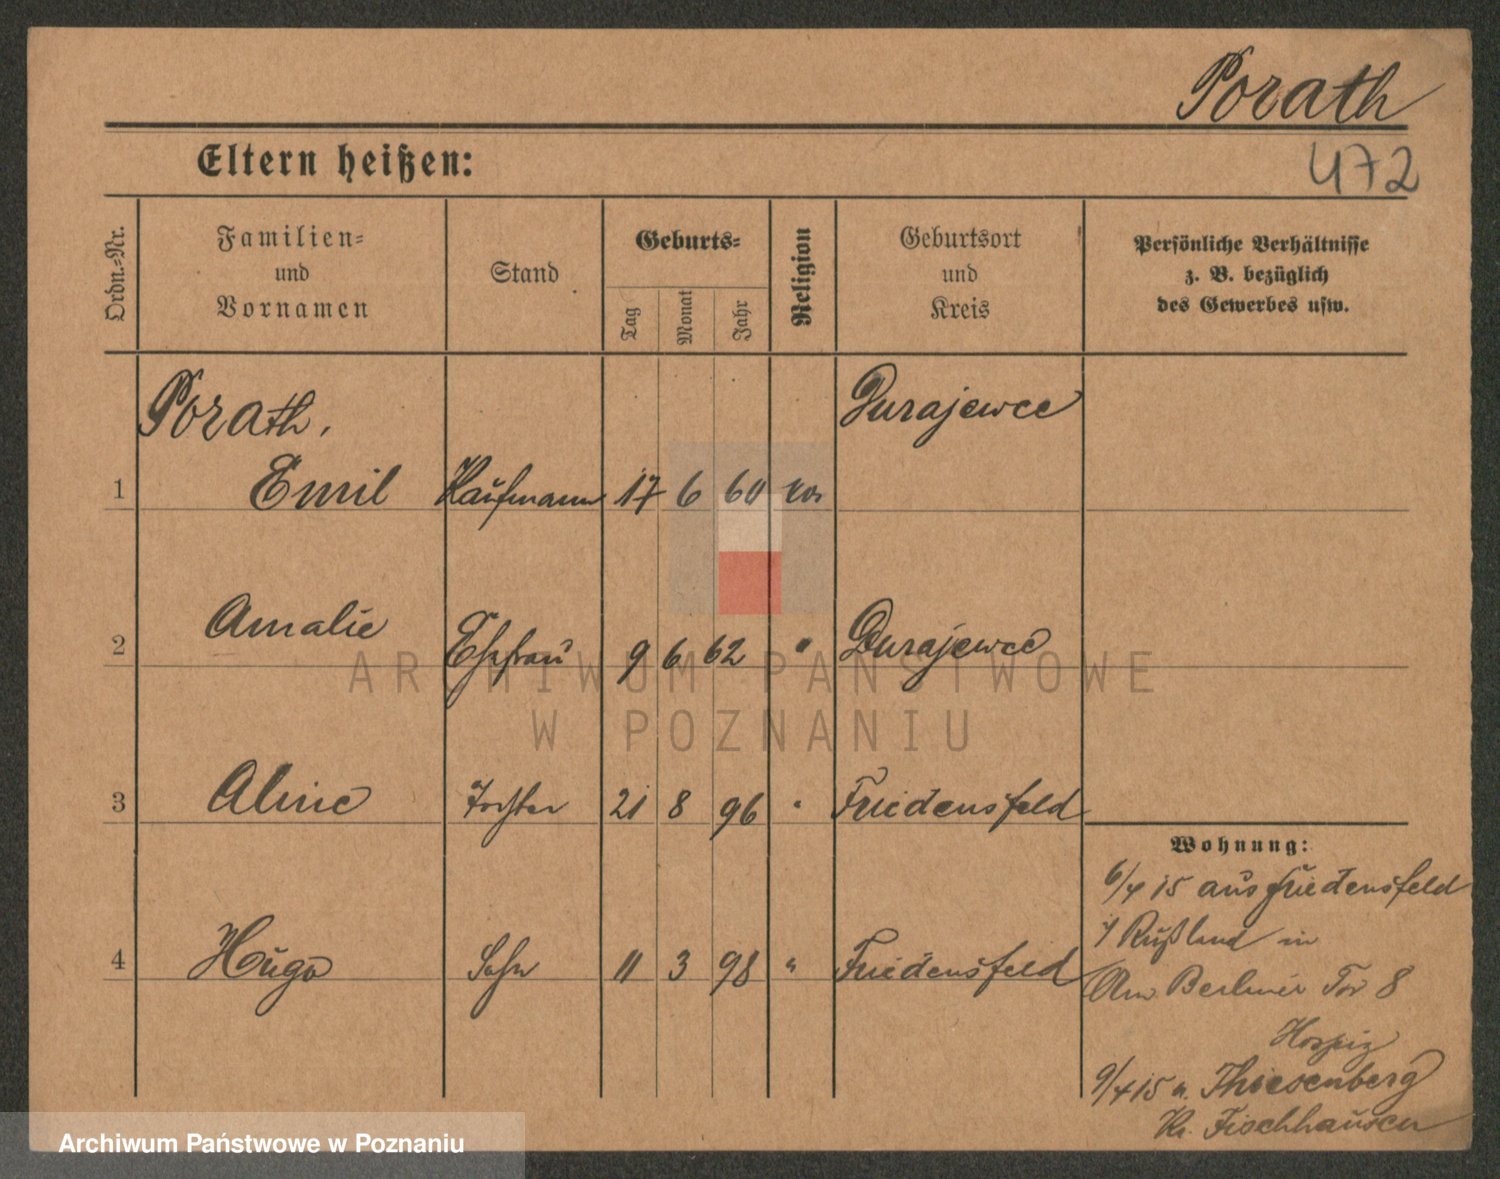 Porath
472
Eltern heißen:
Ordn.-Nr.
Familien-
und
Vornamen
Stand
Geburts-
Tag
Monat
Jahr
Religion
Geburtsort
und
Kreis
Persönliche Verhältnisse
z. B. bezüglich
des Gewerbes usw.
Porath,
Durajewce
1 Emil Kaufmann 17 6 60
2 Amalie Ehefrau 9 6 62 " Durajewce
3 Aline Tochter 21 8 96 " Friedensfeld
4 Hugo Sohn 11 3 98 " Friedensfeld
Wohnung:
6/4 15 aus Friedensfeld
Rußland in
Am Berliner Tor 8
Hospiz
9/4 15 n. Thiesenberg
Kr. Fischhausen
ARCHIWUM PAŃSTWOWE
W POZNANIU
Archiwum Państwowe w Poznaniu